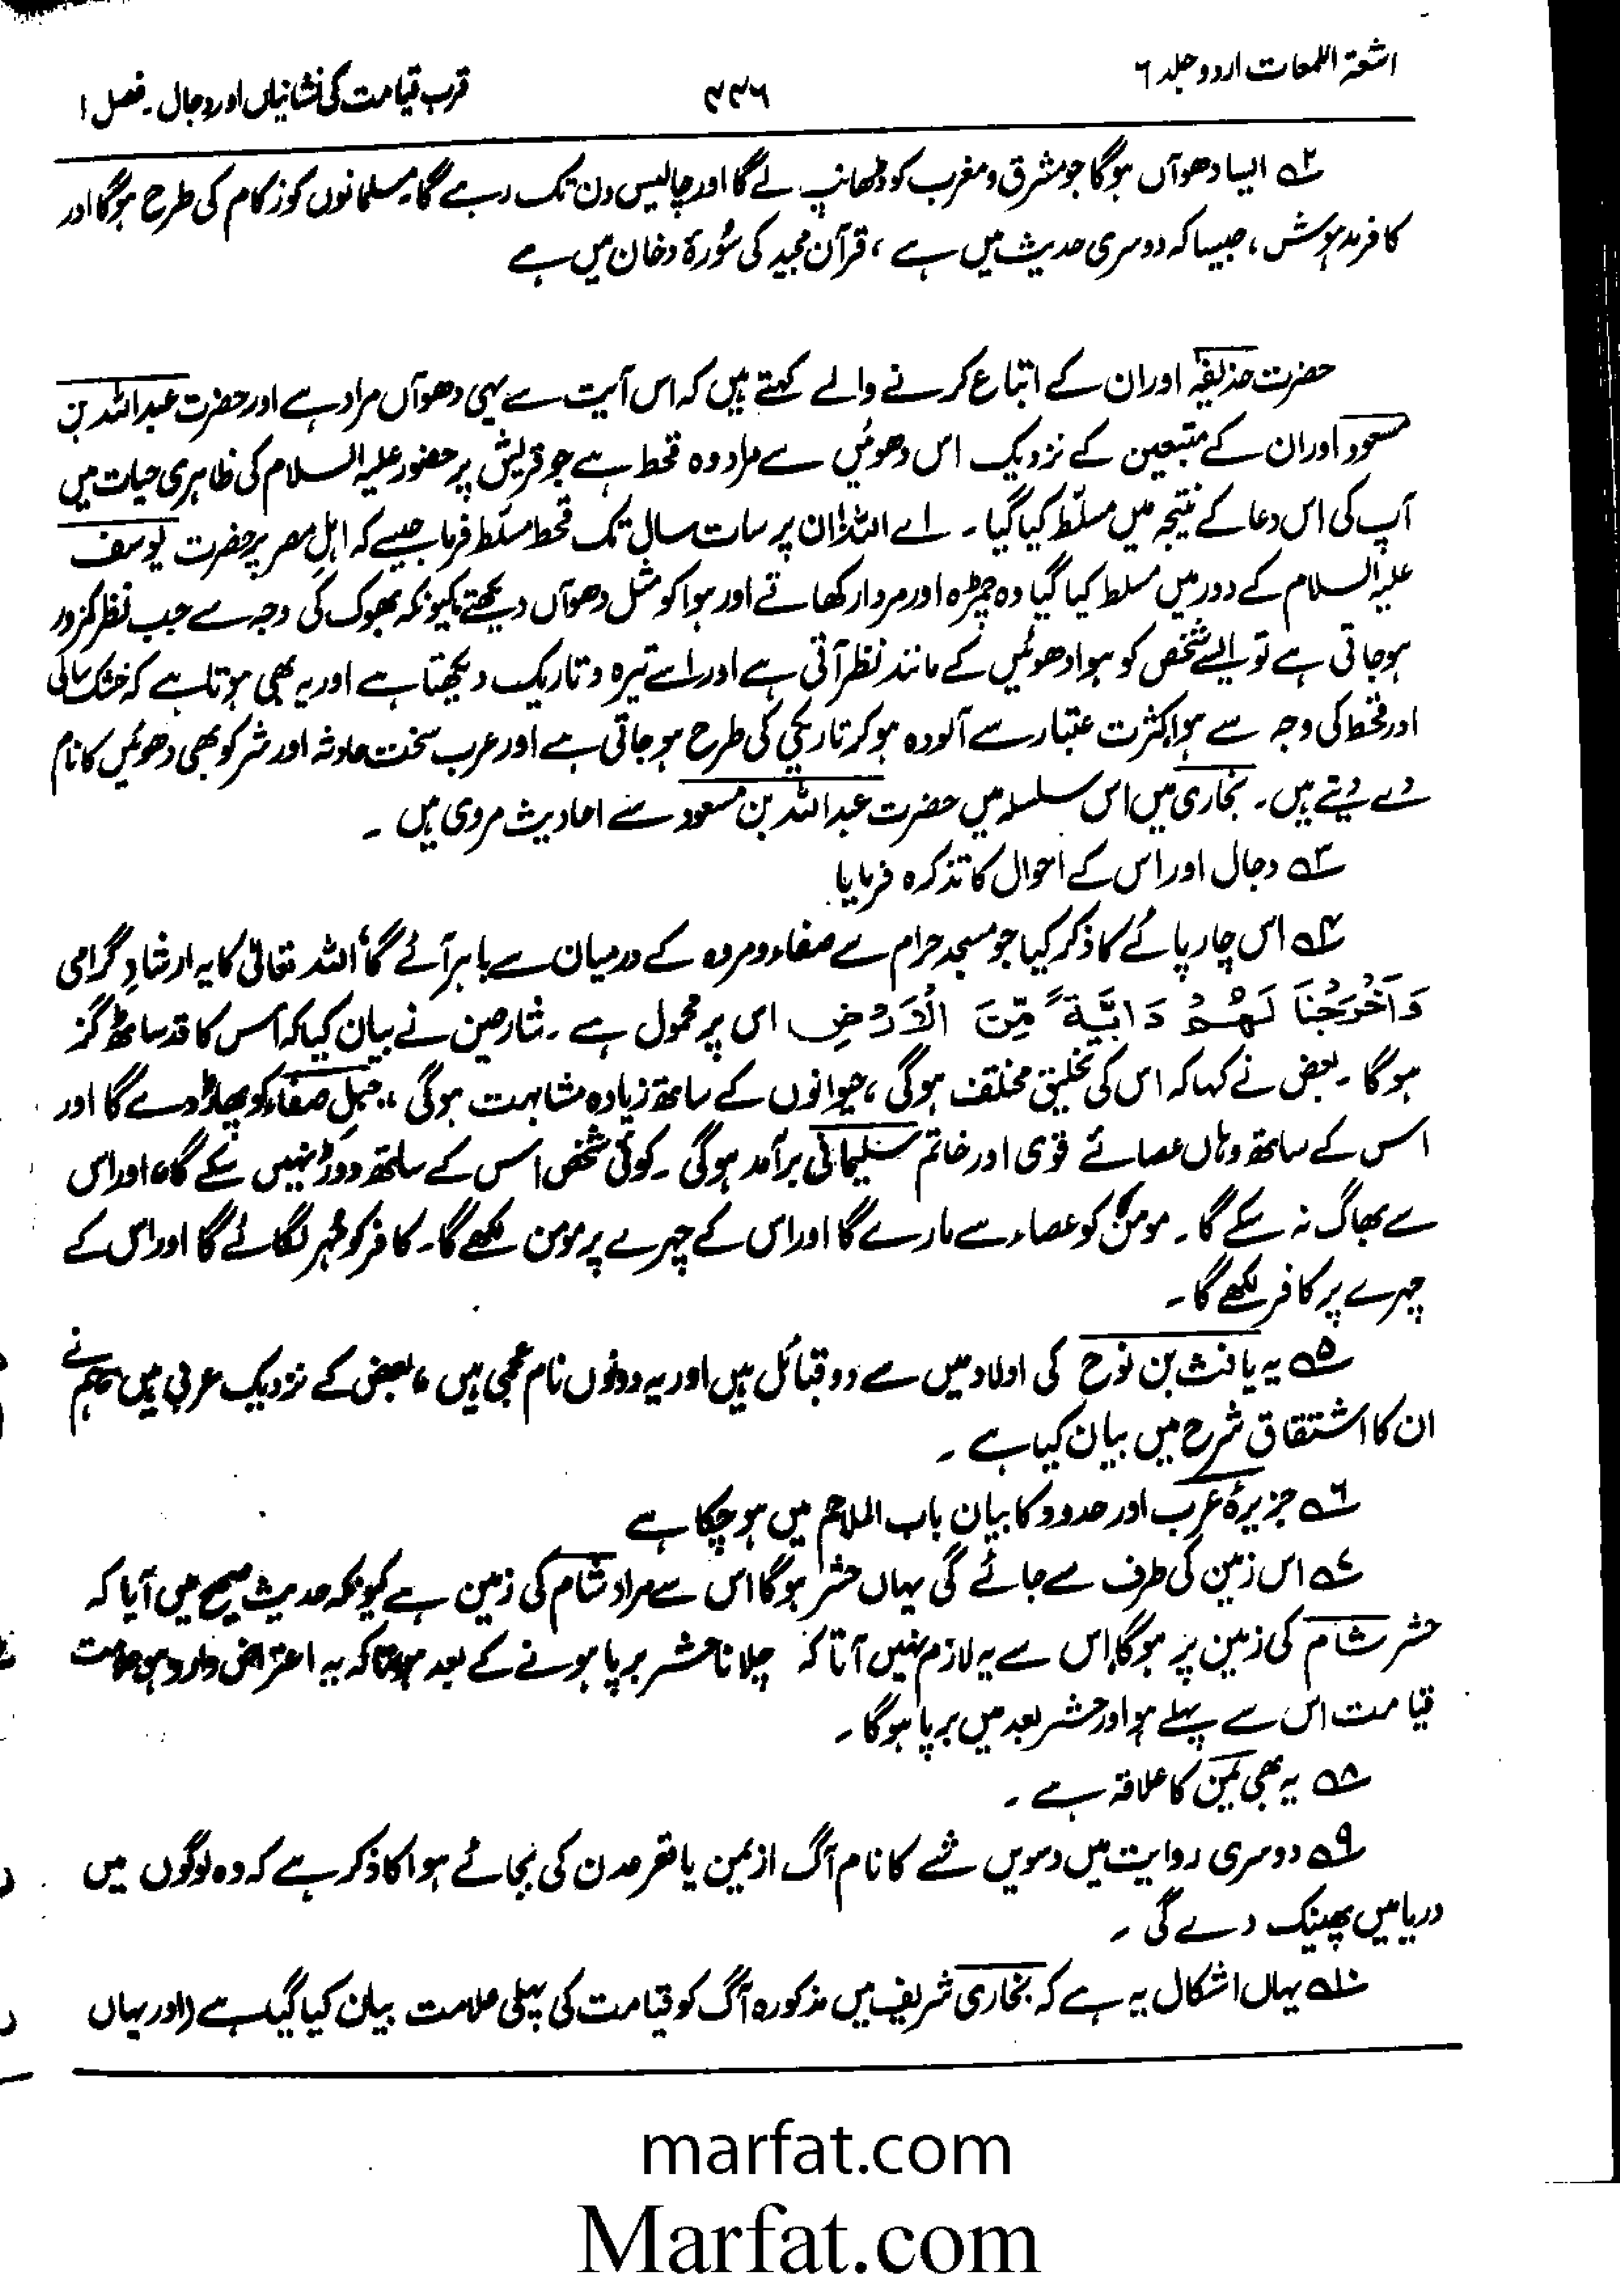 اشعۃ اللمعات اردو جلد ۶
۳۳۶
قرب قیامت کی نشانیاں اور دجال۔ فصل ۱
۲؎ ایسا دھوآں ہوگا جو مشرق و مغرب کو ڈھانپ لے گا اور چالیس دن تک رہے گا۔ مسلمانوں کو زکام کی طرح ہوگا اور
کافر مدہوش، جیسا کہ دوسری حدیث میں ہے، قرآن مجید کی سُورۂ دخان میں ہے
حضرت حذیفہ اور ان کے اتباع کرنے والے کہتے ہیں کہ اس آیت سے یہی دھوآں مراد ہے اور حضرت عبداللہ بن
مسعود اور ان کے متبعین کے نزدیک اس دھوئیں سے مراد وہ قحط ہے جو قریش پر حضور علیہ السلام کی ظاہری حیات میں
آپ کی اس دعا کے نتیجہ میں مسلّط کیا گیا۔ اے اللہ! ان پر سات سال تک قحط مسلّط فرما جیسے کہ اہلِ مصر پر حضرت یوسف
علیہ السلام کے دور میں مسلط کیا گیا وہ چمڑہ اور مردار کھاتے اور ہوا کو مثل دھوآں دیکھتے کیونکہ بھوک کی وجہ سے جب نظر کمزور
ہو جاتی ہے تو ایسے شخص کو ہوا دھوئیں کے مانند نظر آتی ہے اور اسے تیرہ و تاریک دیکھتا ہے اور یہ بھی ہوتا ہے کہ خشک سالی
اور قحط کی وجہ سے ہوا کثرت غبار سے آلودہ ہو کر تاریکی کی طرح ہو جاتی ہے اور عرب سخت حادثہ اور شر کو بھی دھوئیں کا نام
دے دیتے ہیں۔ بخاری میں اس سلسلہ میں حضرت عبداللہ بن مسعود سے احادیث مروی ہیں ۔
۳؎ دجال اور اس کے احوال کا تذکرہ فرمایا۔
۴؎ اس چارپائے کا ذکر کیا جو مسجد حرام سے صفاء و مروہ کے درمیان سے باہر آئے گا، اللہ تعالیٰ کا یہ ارشادِ گرامی
وَاَخْرَجْنَا لَهُمْ دَابَّةً مِّنَ الْاَرْضِ اس پر محمول ہے ۔ شارحین نے بیان کیا کہ اس کا قد ساٹھ گز
ہوگا ۔ بعض نے کہا کہ اس کی تخلیق مختلف ہوگی، حیوانوں کے ساتھ زیادہ مشابہت ہوگی، جبلِ صفاء کو پھاڑ دے گا اور
اس کے ساتھ وہاں عصائے قوی اور خاتم سلیمانی برآمد ہوگی ۔ کوئی شخص اس کے ساتھ دوڑ نہیں سکے گا، اور اس
سے بھاگ نہ سکے گا ۔ مومن کو عصاء سے مارے گا اور اس کے چہرے پر مومن لکھے گا۔ کافر کو مُہر لگائے گا اور اس کے
چہرے پر کافر لکھے گا ۔
۵؎ یہ یافث بن نوح کی اولاد میں سے دو قبائل ہیں اور یہ دونوں نام عجمی ہیں، بعض کے نزدیک عربی ہیں ہم نے
ان کا اشتقاق شرح میں بیان کیا ہے ۔
۶؎ جزیرۂ عرب اور حدود کا بیان باب الملاحم میں ہو چکا ہے
۷؎ اس زمین کی طرف لے جائے گی یہاں حشر ہوگا اس سے مراد شام کی زمین ہے کیونکہ حدیث صحیح میں آیا کہ
حشر شام کی زمین پر ہوگا، اس سے یہ لازم نہیں آتا کہ چلانا حشر برپا ہونے کے بعد ہو تاکہ یہ اعتراض وارد ہو علامت
قیامت اس سے پہلے ہو اور حشر بعد میں برپا ہوگا ۔
۸؎ یہ بھی یمن کا علاقہ ہے ۔
۹؎ دوسری روایت میں دسویں شے کا نام آگ از یمن یا قعر عدن کی بجائے ہوا کا ذکر ہے کہ وہ لوگوں میں
دریا میں پھینک دے گی ۔
۱۰؎ یہاں اشکال یہ ہے کہ بخاری شریف میں مذکورہ آگ کو قیامت کی پہلی علامت بیان کیا گیا ہے (اور یہاں
marfat.com
Marfat.com